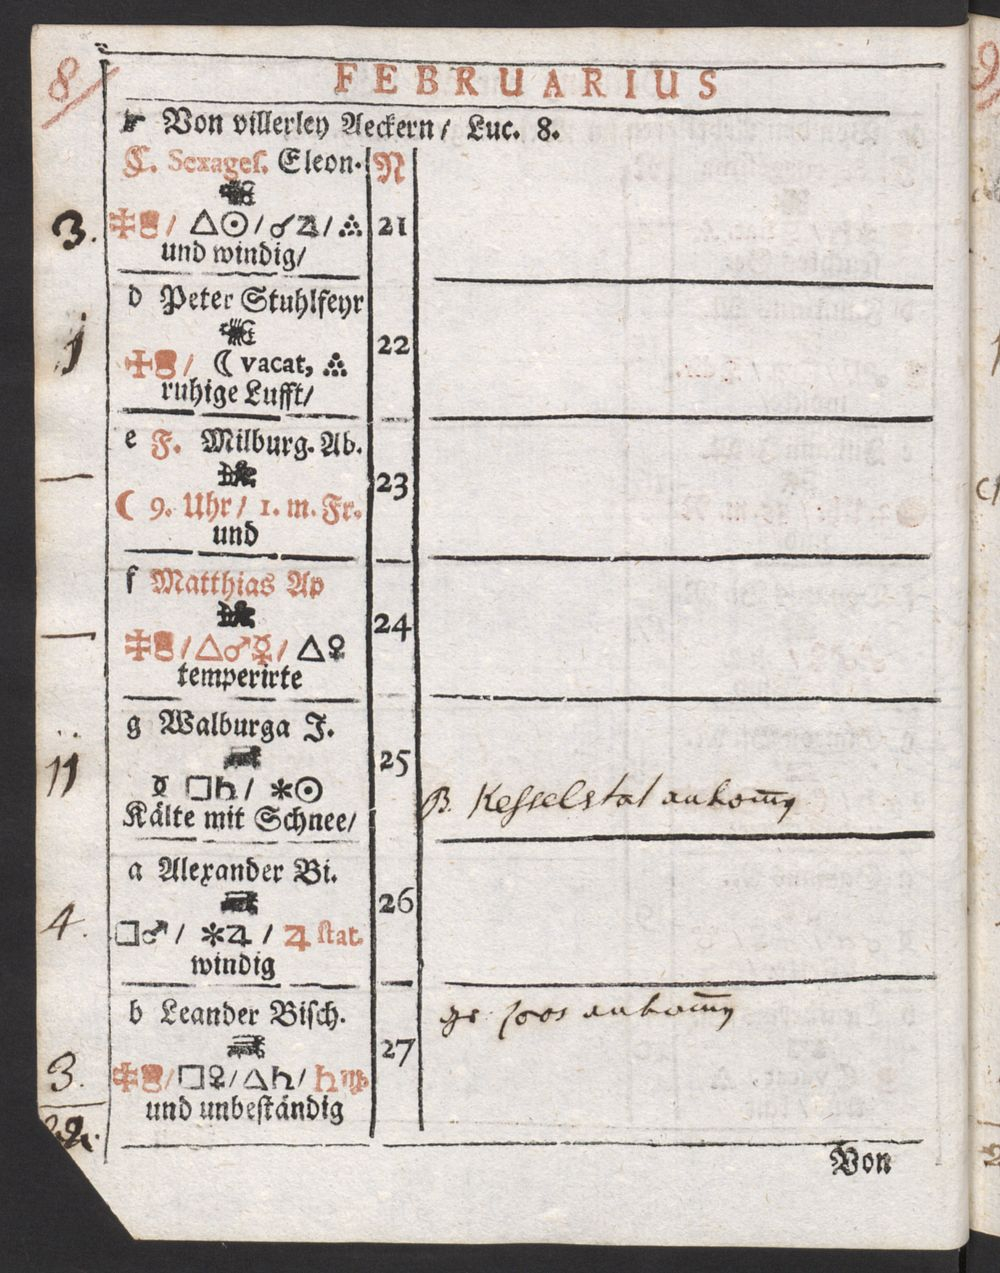 8
FEBRUARIUS
☛ Von villerley Aeckern / Luc. 8.
C. Sexages. Eleon. N
3. / △☉ / ☌♃ / ஃ 21
und windig /
d Peter Stuhlfeyr
j / ☾ vacat, ஃ 22
ruhige Lufft /
e F. Milburg. Ab.
— 23
☾ 9. Uhr / 1. m. Fr.
und
f Matthias Ap
— 24
/ △♂☿ / △♀
temperirte
g Walburga J.
11 25
□♄ / ✱☉
Kälte mit Schnee /
B. Kesselstat ankom̄
a Alexander Bi.
4. 26
□♂ / ✱♃ / ♃ stat.
windig
b Leander Bisch.
ankom̄
3. 27
/ □♀ / △♄ / ♄♍
und unbeständig
Von